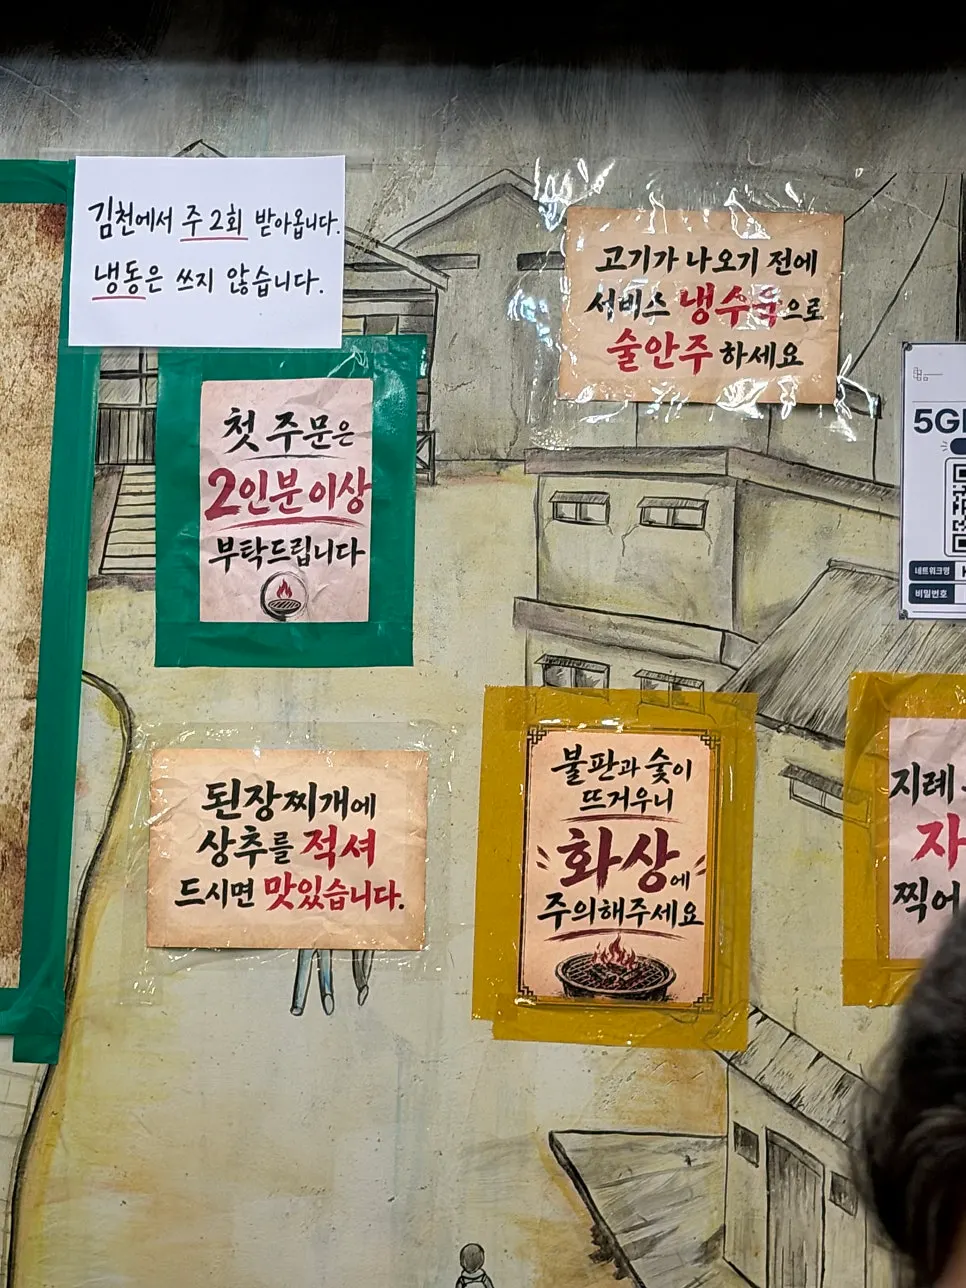 김천에서 주 2회 받아옵니다.
냉동은 쓰지 않습니다.
고기가 나오기 전에
서비스 냉수육으로
술안주 하세요
첫 주문은
2인분이상
부탁드립니다
된장찌개에
상추를 적셔
드시면 맛있습니다.
불판과 숯이
뜨거우니
화상에
주의해주세요
5G
네트워크명
비밀번호
지례
자
찍어